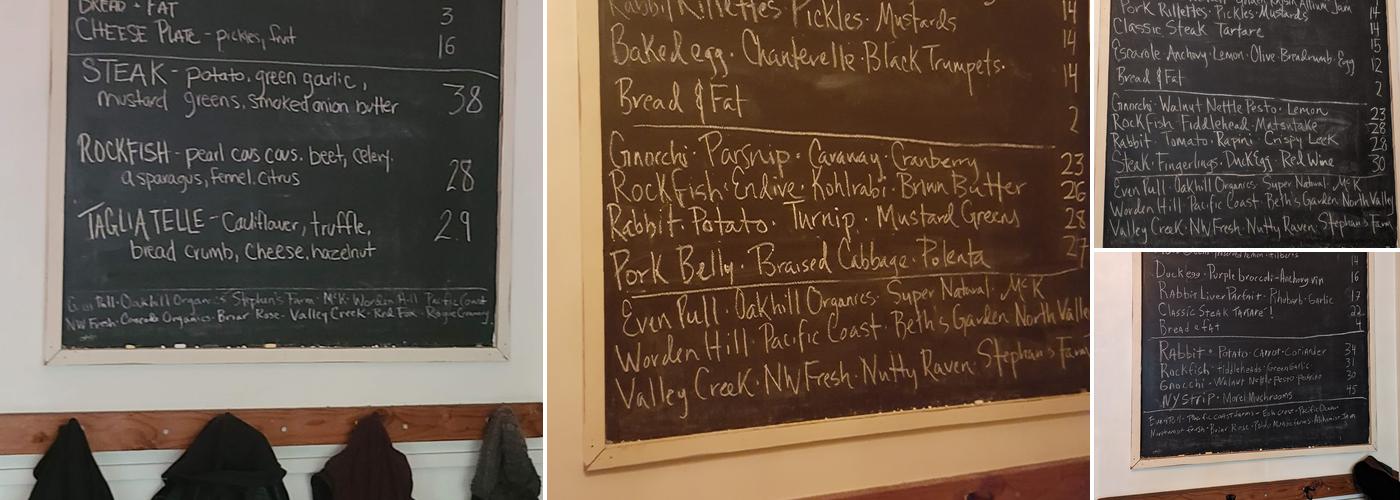 BREAD + FAT 3
CHEESE PLATE - pickles, fruit 16
STEAK - potato, green garlic,
mustard greens, smoked onion butter 38
ROCKFISH - pearl cous cous, beet, celery,
asparagus, fennel, citrus 28
TAGLIATELLE - Cauliflower, truffle,
bread crumb, Cheese, hazelnut 29
Pull · Oakhill Organics · Stephan's Farm · McK · Worden Hill · Pacific Coast
NW Fresh · Organics · Briar Rose · Valley Creek · Red Fox · Rogue Creamery
Rabbit Rillettes · Pickles · Mustards 14
Baked egg · Chanterelle · Black Trumpets · 14
14
Bread & Fat 2
Gnocchi · Parsnip · Caraway · Cranberry 23
Rockfish · Endive · Kohlrabi · Brown Butter 26
Rabbit · Potato · Turnip · Mustard Greens 28
Pork Belly · Braised Cabbage · Polenta 27
Even Pull · Oakhill Organics · Super Natural · McK
Worden Hill · Pacific Coast · Beth's Garden North Valley
Valley Creek · NW Fresh · Nutty Raven · Stephan's Farm
Raisin Allium Jam 14
Pork Rillettes · Pickles · Mustards 14
Classic Steak Tartare 15
Escarole · Anchovy · Lemon · Olive · Breadcrumb · Egg 12
Bread & Fat 2
Gnocchi · Walnut Nettle Pesto · Lemon 23
Rockfish · Fiddlehead · Matsutake 28
Rabbit · Tomato · Rapini · Crispy Leek 28
Steak · Fingerlings · Duck Egg · Red Wine 30
Even Pull · Oakhill Organics · Super Natural · McK
Worden Hill · Pacific Coast · Beth's Garden North Valley
Valley Creek · NW Fresh · Nutty Raven · Stephan's Farm
14
Duck egg · Purple broccoli · 16
Rabbit Liver Parfait · Rhubarb · Garlic 17
Classic Steak Tartare! 22
Bread & fat 4
Rabbit · Potato · Carrot · Coriander 34
Rockfish · Fiddleheads · Green Garlic 31
Gnocchi · Walnut Nettle pesto · pecorino 30
NY Strip · Morel Mushrooms 45
Even Pull · Pacific Coast · Creek · Pacific
Northwest Fresh · Briar Rose ·